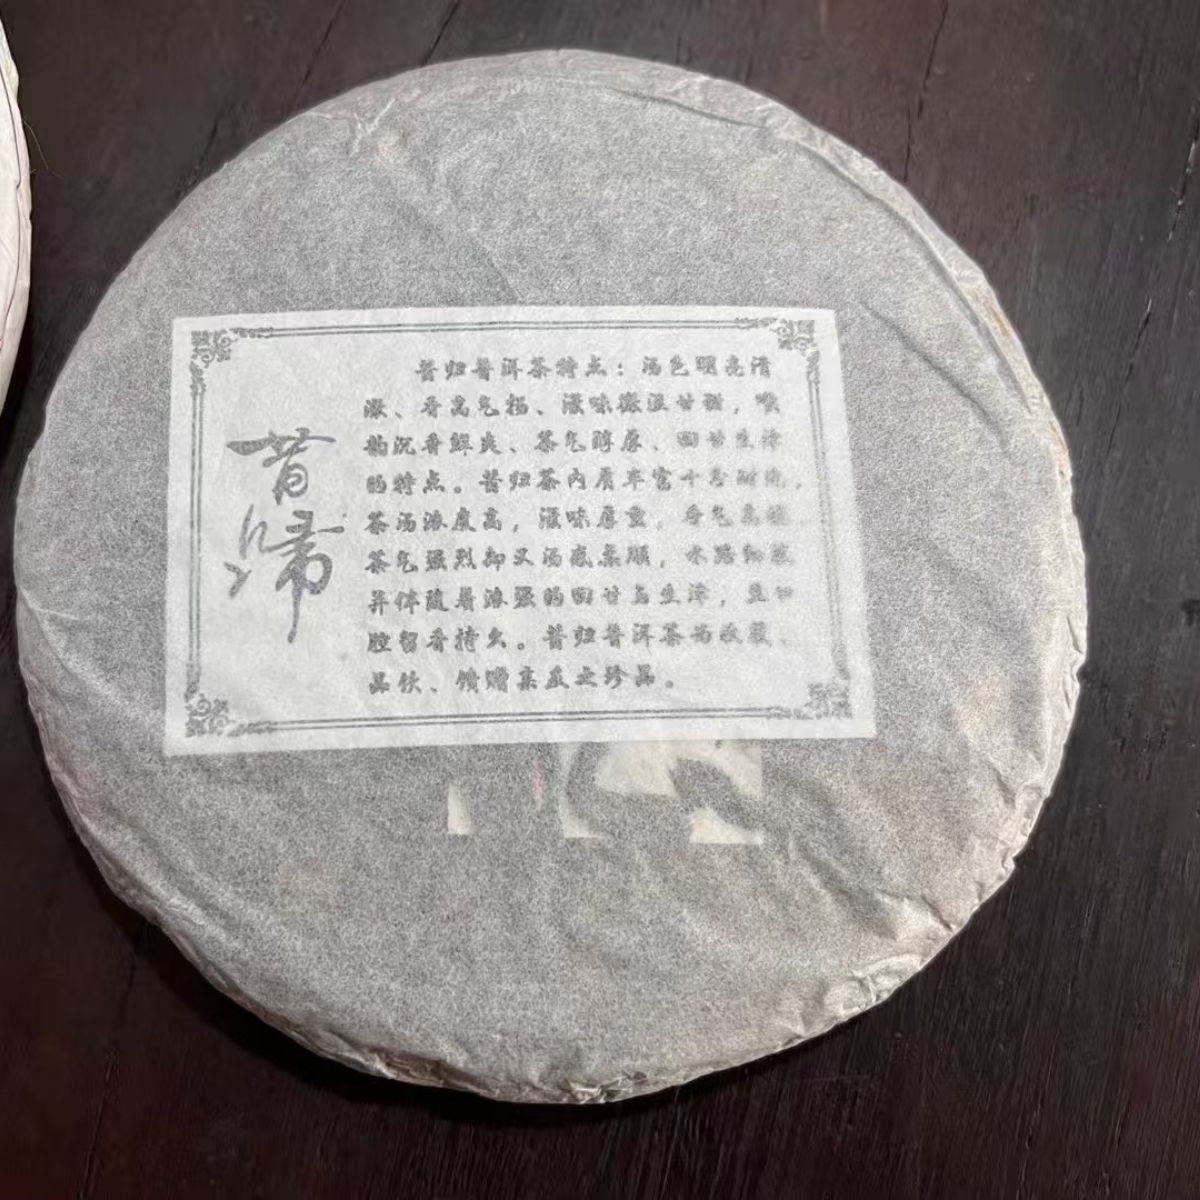 昔归
昔归普洱茶特点：汤色明亮清
澈、香高气扬、滋味微涩甘甜，喉
韵沉香鲜爽、茶气醇厚、回甘生津
的特点。昔归茶内质丰富十分耐泡，
茶汤浓度高，滋味厚重，香气高锐，
茶气强烈却又汤感柔顺，水路细腻
并伴随着浓强的回甘与生津，且口
腔留香持久。昔归普洱茶为收藏、
品饮、馈赠亲友之珍品。